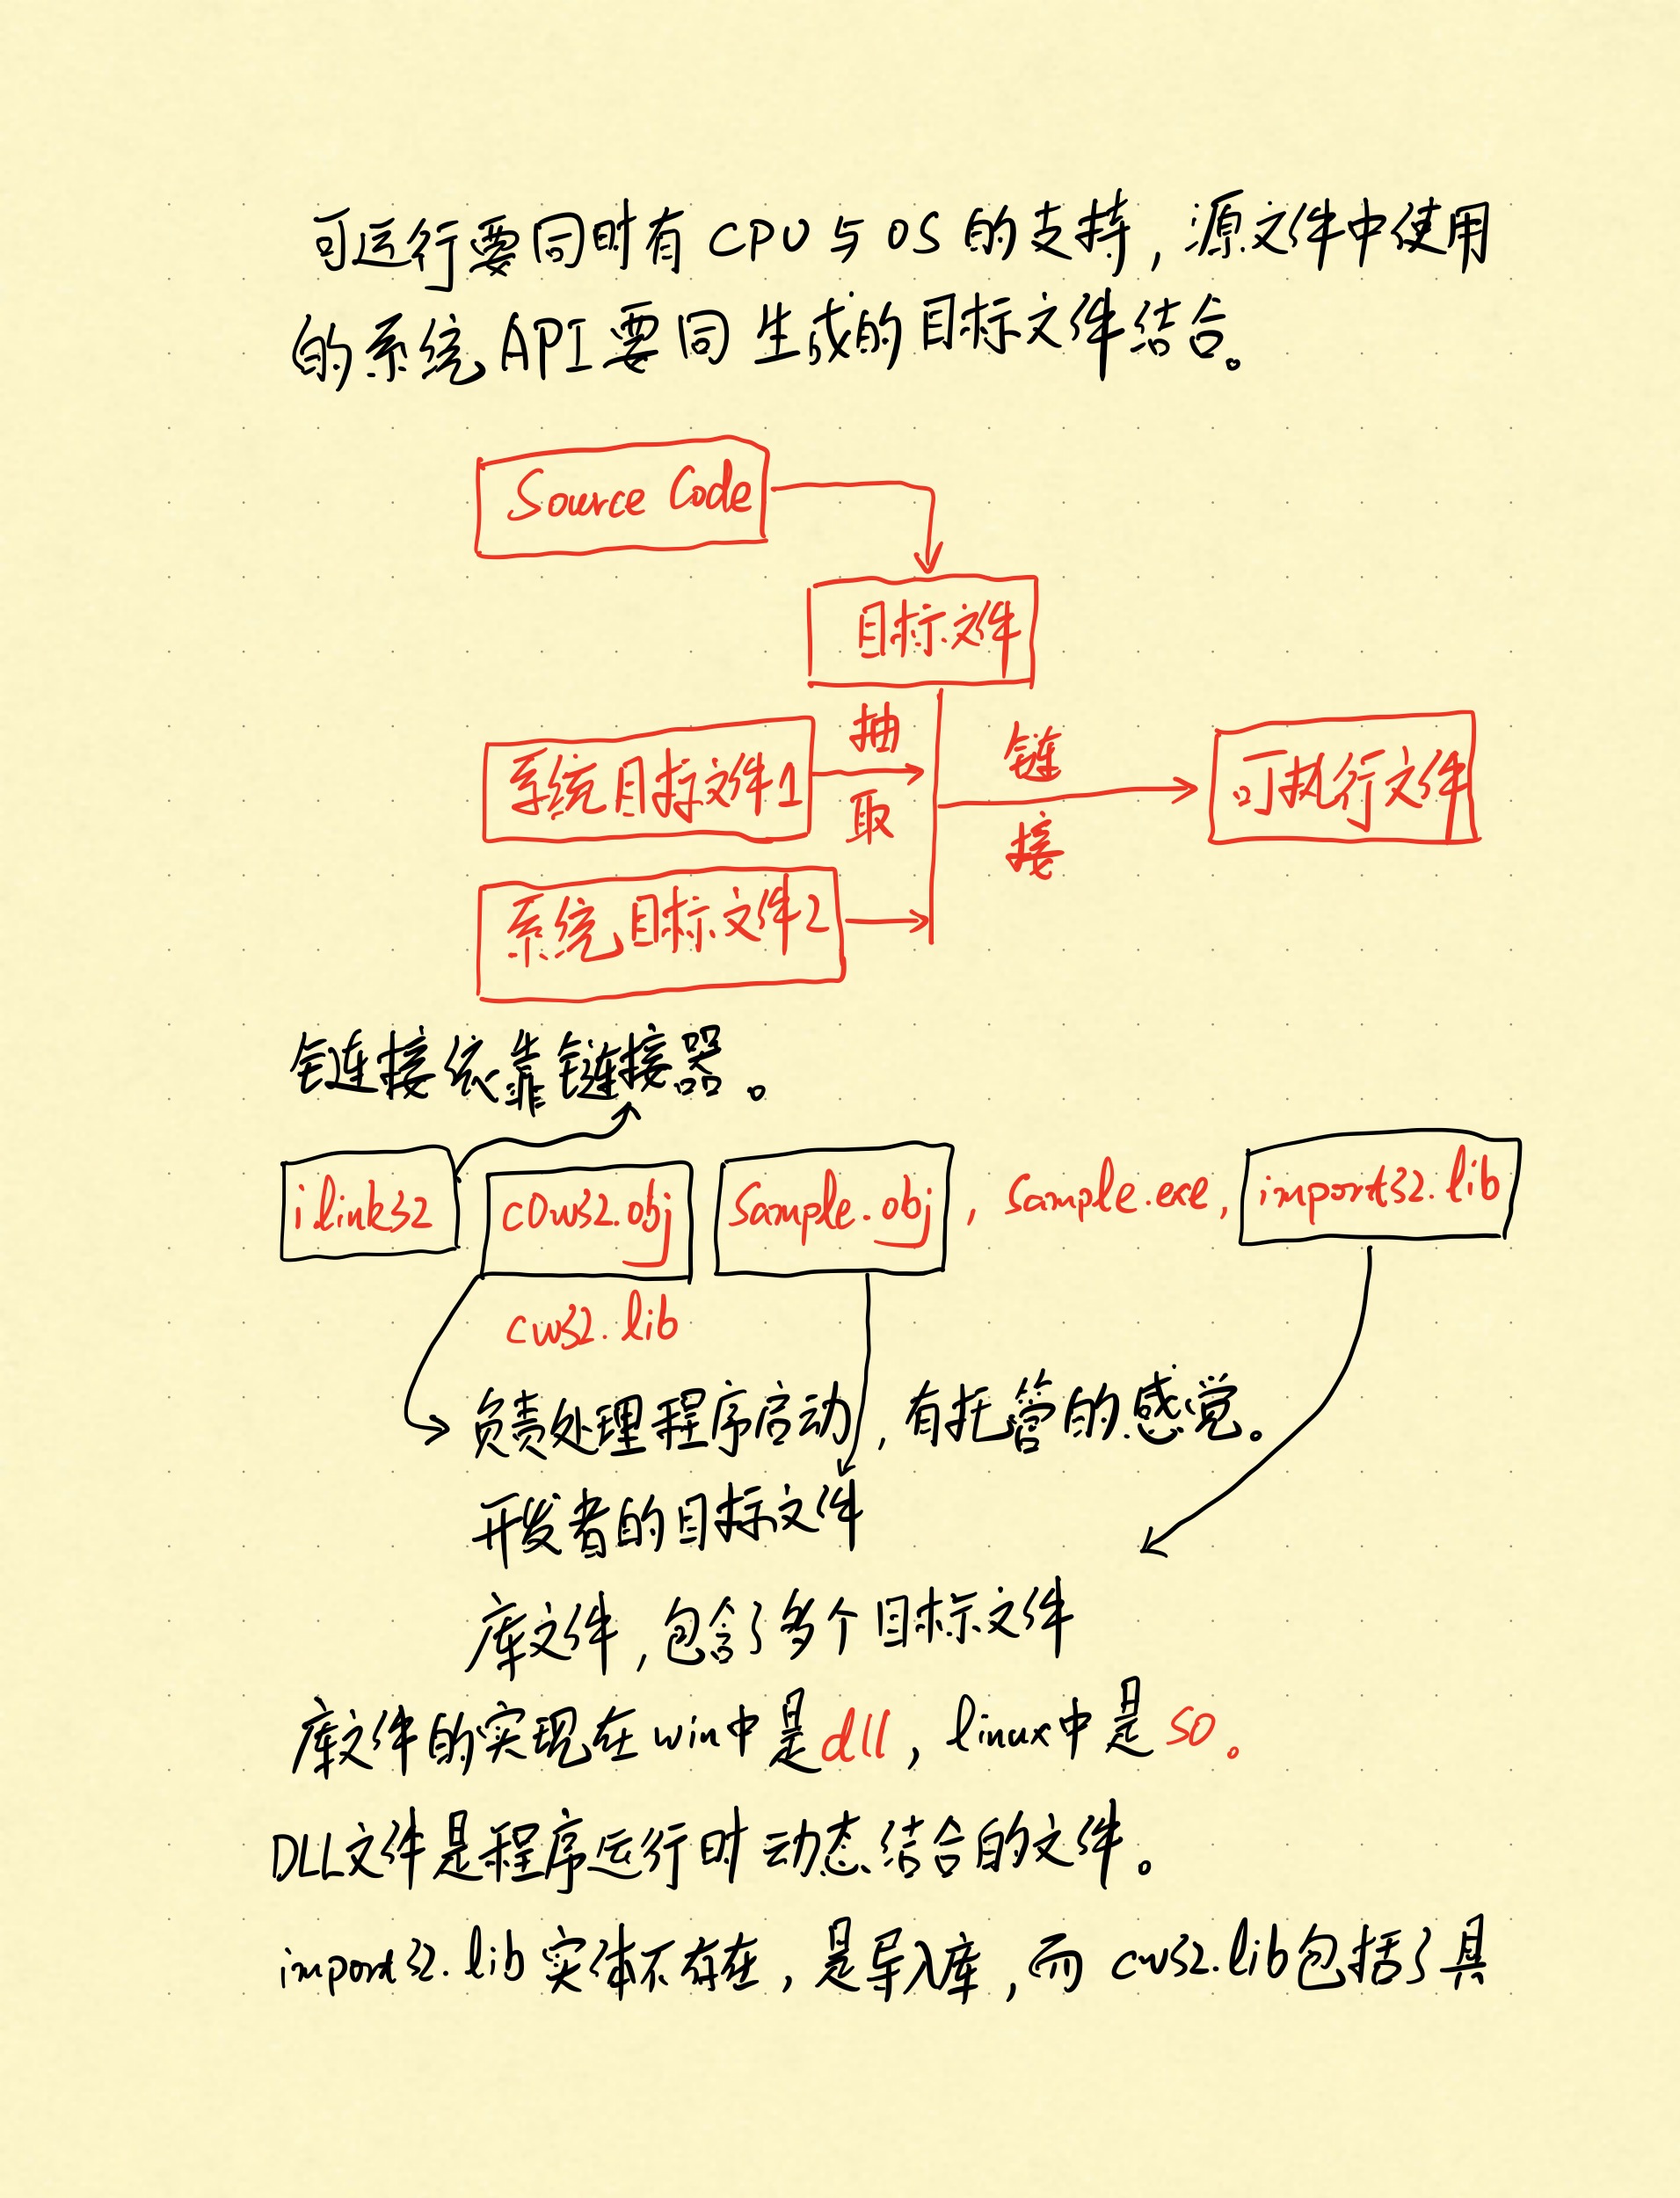 可运行要同时有CPU与OS的支持，源文件中使用
的系统API要同生成的目标文件结合。
Source Code
目标文件
抽
取
链
接
系统目标文件1
可执行文件
系统目标文件2
链接依靠链接器。
ilink32 c0w32.obj Sample.obj , Sample.exe, import32.lib
cw32.lib
负责处理程序启动，有托管的感觉。
开发者的目标文件
库文件，包含了多个目标文件
库文件的实现在win中是dll，linux中是so。
DLL文件是程序运行时动态结合的文件。
import32.lib实体不存在，是导入库，而cw32.lib包括了具